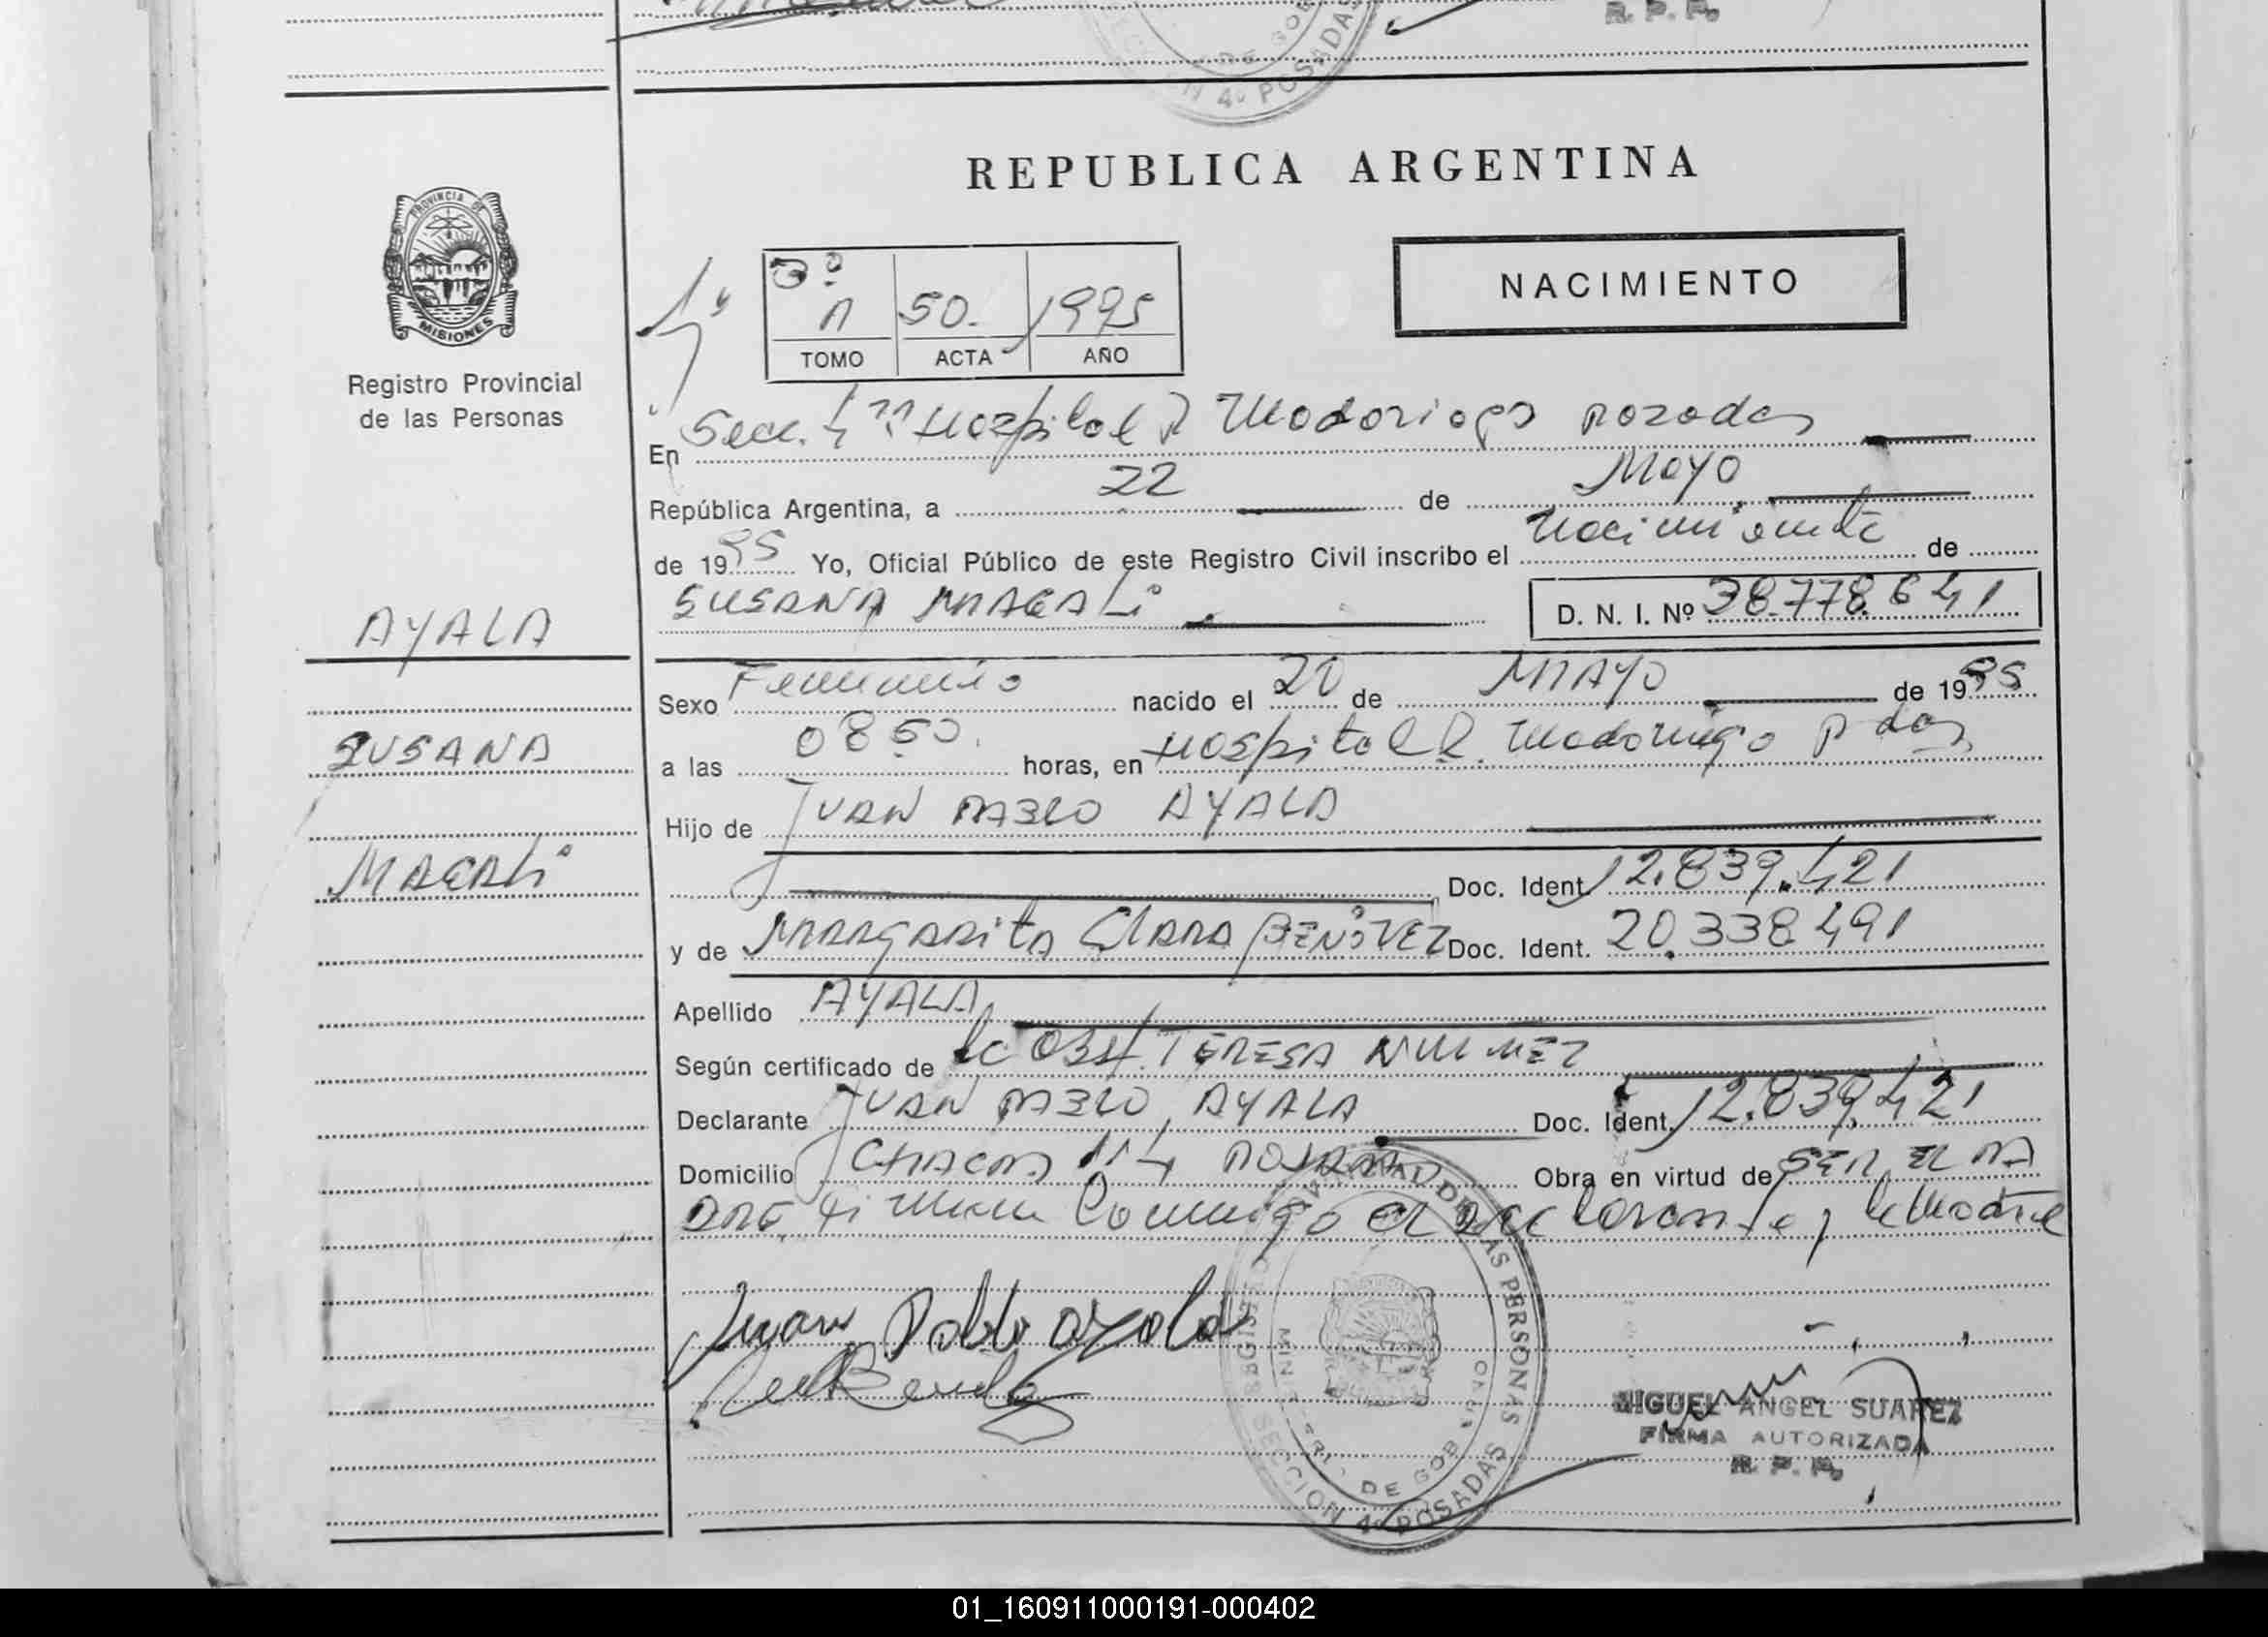 R. P. P.
N 4º POSADAS
REPUBLICA ARGENTINA
PROVINCIA DE
MISIONES
Registro Provincial
de las Personas
NACIMIENTO
3º
50. 1995
TOMO ACTA AÑO
En Secc. 4ª Hospital R Madariaga Posadas
República Argentina, a 22 de Mayo
de 1995 Yo, Oficial Público de este Registro Civil inscribo el Nacimiento de
SUSANA MAGALI D. N. I. Nº 38.778.641
AYALA
SUSANA
MAGALI
Sexo Femenino nacido el 20 de MAYO de 1995
a las 08 50. horas, en Hospital R. Madariaga Pdas
Hijo de JUAN PABLO AYALA
Doc. Ident. 12.839.421
y de MARGARITA CLARA BENITEZ Doc. Ident. 20.338.491
Apellido AYALA
Según certificado de la OBST. TERESA NUÑEZ
Declarante JUAN PABLO AYALA Doc. Ident. 12.839.421
Domicilio CHACRA 114 POSADAS Obra en virtud de SER EL PA
DRE, firma conmigo el declarante y la Madre
Juan Pablo ayala
REGISTRO DE LAS PERSONAS
SECCION 4º POSADAS
DE GOB
MIGUEL ANGEL SUAREZ
FIRMA AUTORIZADA
R. P. P.
01_160911000191-000402